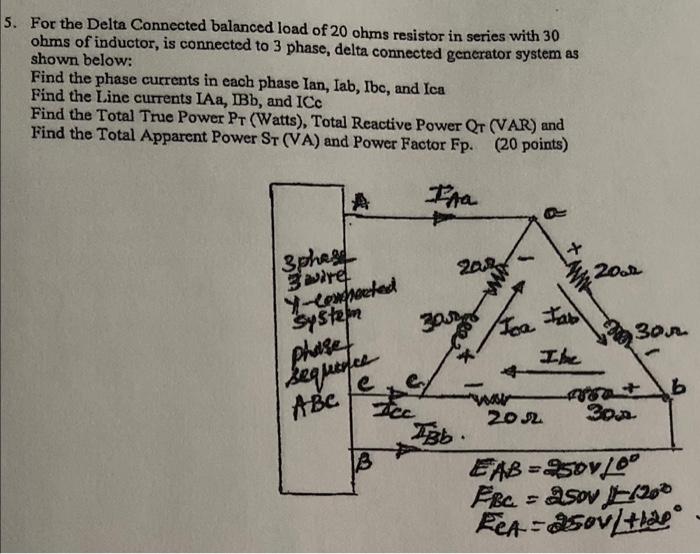 5. For the Delta Connected balanced load of 20 ohms resistor in series with 30
ohms of inductor, is connected to 3 phase, delta connected generator system as
shown below:
Find the phase currents in each phase Ian, Iab, Ibc, and Ica
Find the Line currents IAa, IBb, and ICc
Find the Total True Power PT (Watts), Total Reactive Power QT (VAR) and
Find the Total Apparent Power ST (VA) and Power Factor Fp. (20 points)
A
IAa
a
3phase
3wire
Y-connected
system
phase
sequence
ABC
20Ω
-
+
20Ω
30Ω
Ica
Iab
30Ω
+
-
Ibc
c
c
-
+
b
Icc
20Ω
30Ω
IBb.
B
EAB = 250V/0°
EBC = 250V/-120°
ECA = 250V/+120°